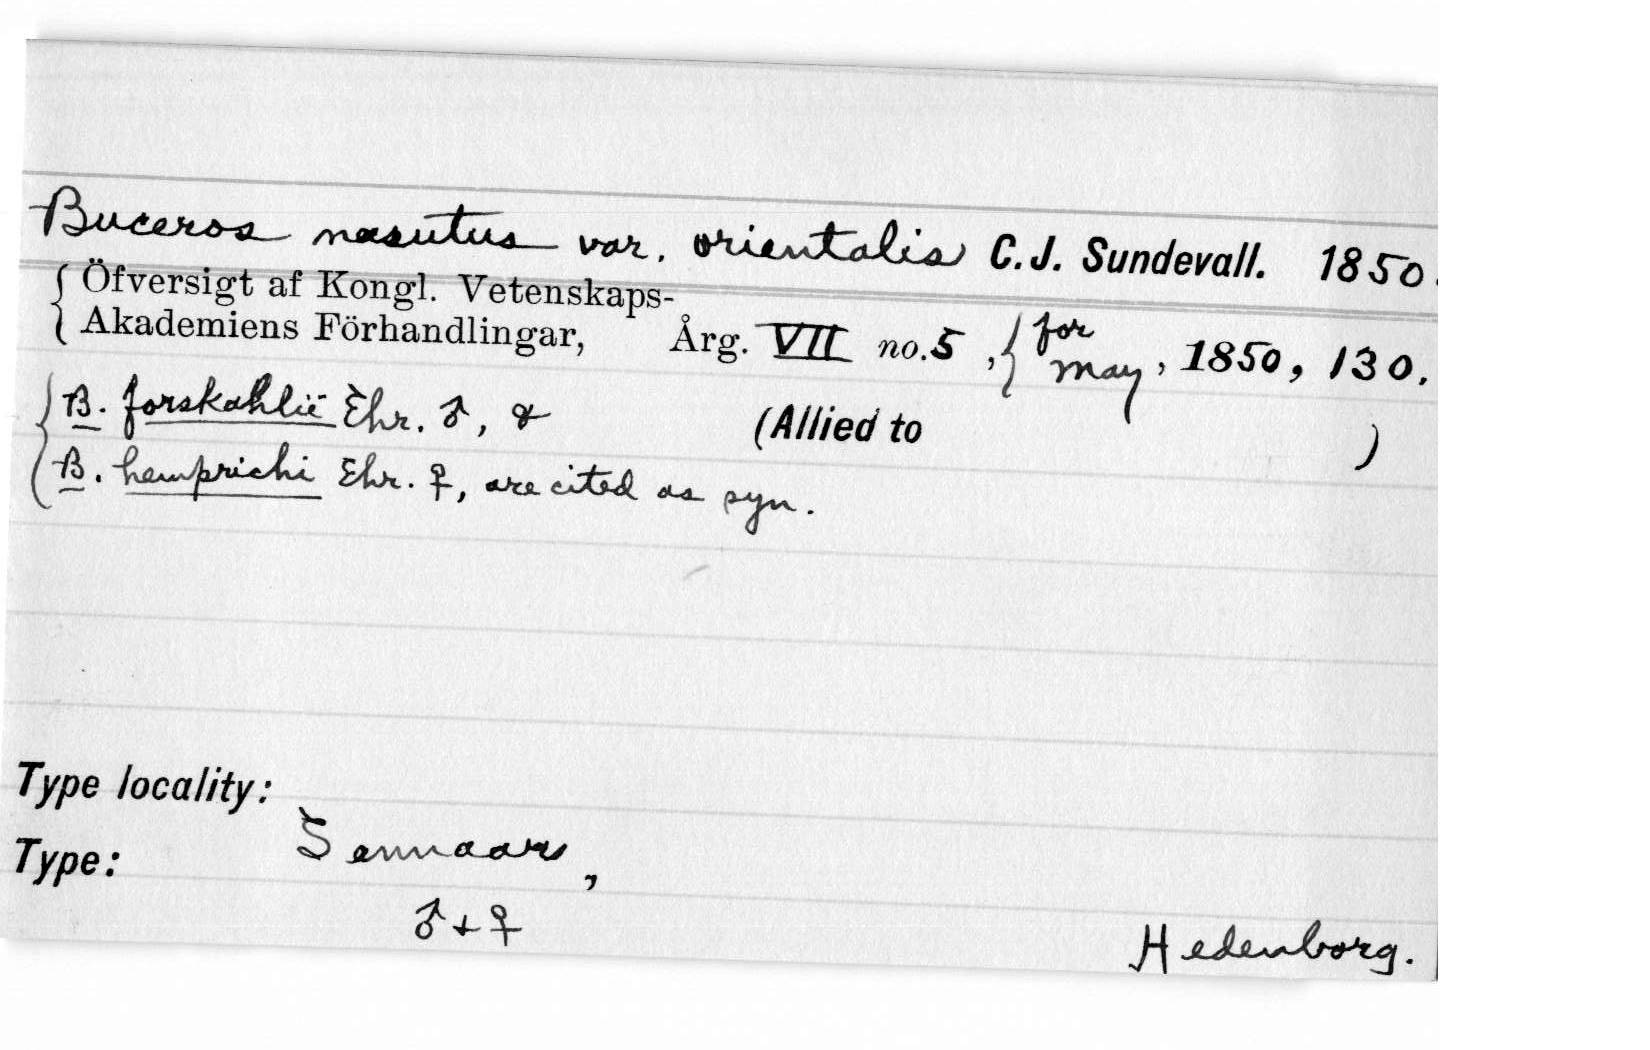 Buceros nasutus var. orientalis C. J. Sundevall. 1850.
{ Öfversigt af Kongl. Vetenskaps-
Akademiens Förhandlingar, Årg. VII no. 5, { for May, 1850, 130.
{ B. forskahlii Ehr. ♂, & (Allied to )
B. hemprichi Ehr. ♀, are cited as syn.
Type locality:
Sennaar,
Type:
♂ + ♀
Hedenborg.